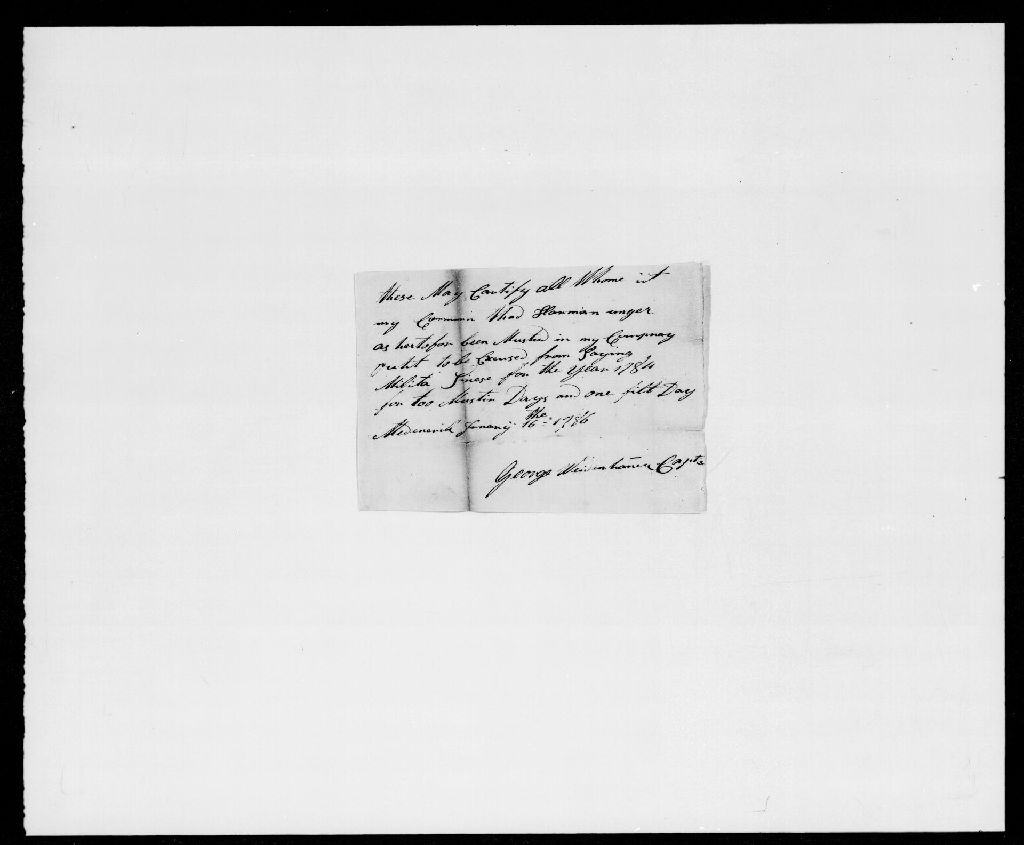 these May Certify all Whome it
my Concrnin that Harman unger
as hertofor been Mustrd in my Compnay
to be Excused from Paying
Milita fines for the year 1784
for too Mustrin Days and one filt Day
January the 16 1786
George Weisenhauer Capt